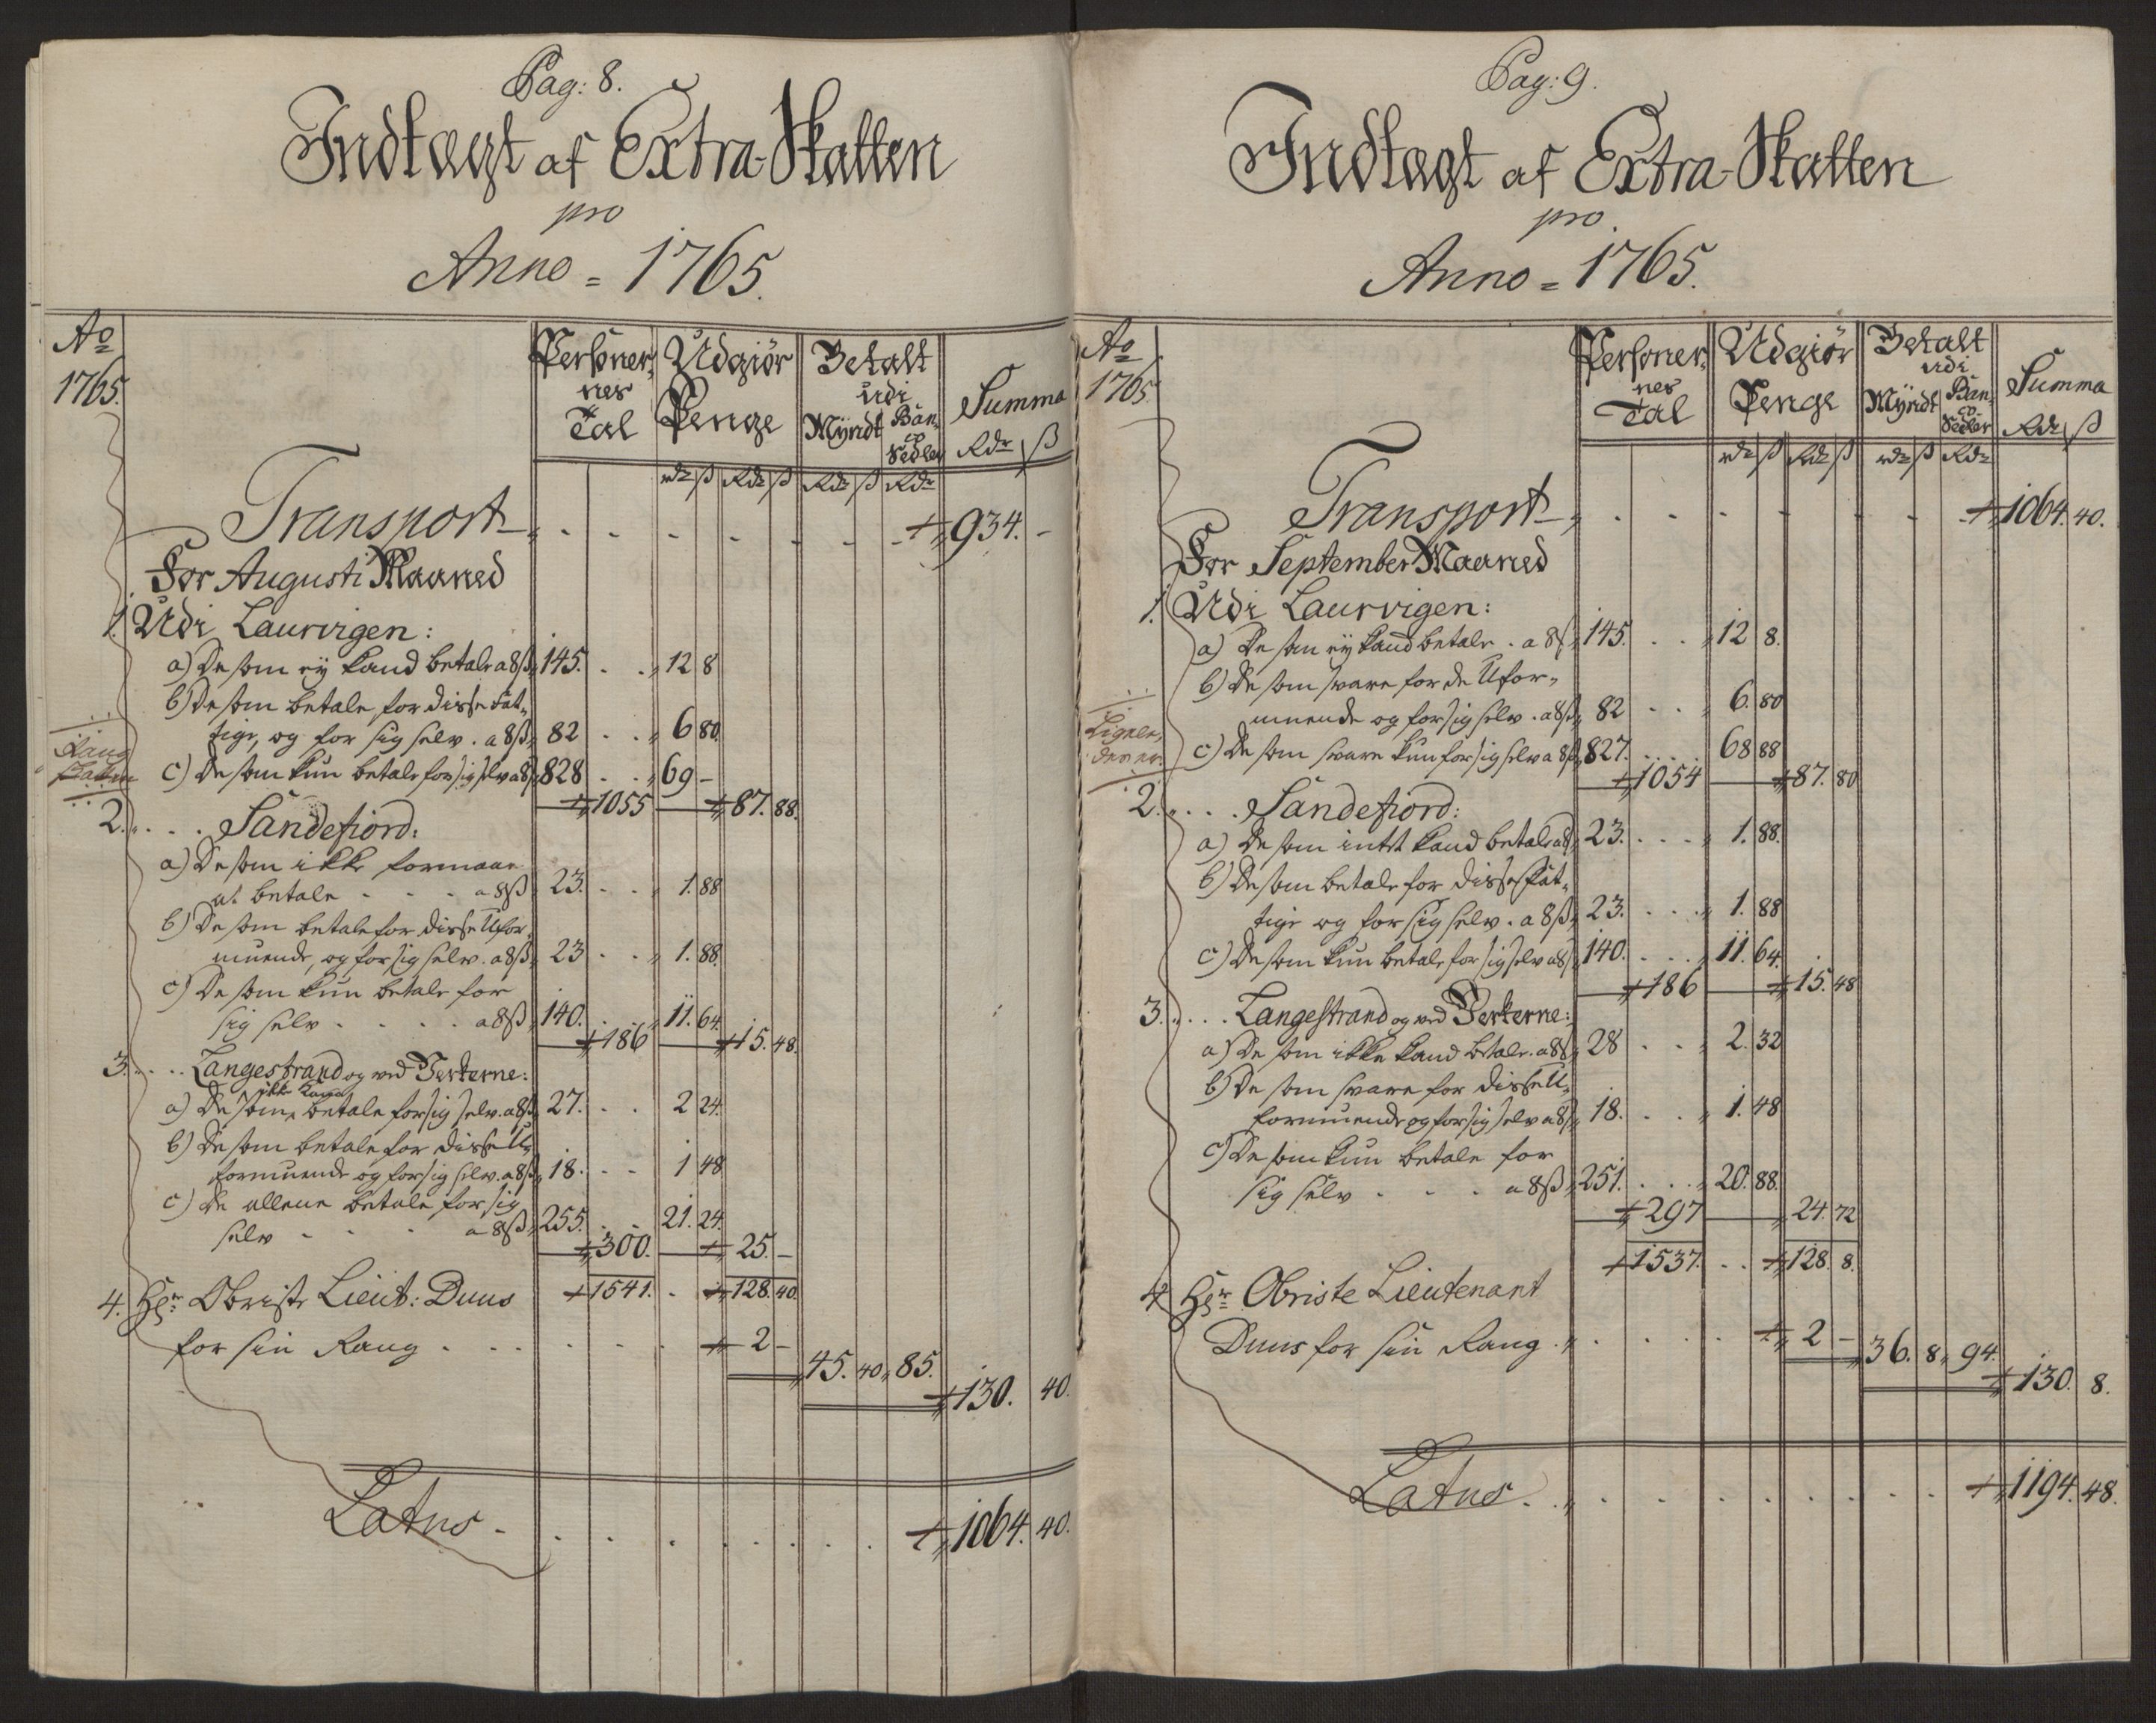 Pag: 8.
Indtægt af Extra-Skatten
pro
Anno = 1765.
Ao 1765.
Personer, nes Tal
Udgiör Penge
Betalt udi
Myndt
Ban, co Sedler
Summa
Rdr ß
rdr ß Rdr ß Rdr ß Rdr
Transport - - - - - - 934. -
For Augusti Maaned
1. Udi Laurvigen:
a) De som ey kand betale a 8ß 145. . . 12 8
b) De som betale for disse Fat,
tige, og for sig selv. a 8ß 82 . . 6 80.
c) De som kun betale for sig selv a 8ß 828 . . 69 -
1055 87. 88.
2. . . . Sandefiord:
a) De som ikke formaae
at betale - - - a 8ß 23. . . 1. 88
b) De som betale for disse Ufor,
muende, og for sig selv. a 8ß 23 . . 1. 88.
c) De som kun betale for
sig selv . . . . a 8ß 140. . . 11. 64
186 15. 48.
3. . . . Langestrand og ved Verkerne:
ikke kand
a) De som betale for sig selv. a 8ß 27. . . 2 24.
b) De som betale for disse U,
formuende og for sig selv. a 8ß 18. . . 1 48
c) De allene betale for sig
selv - - - a 8ß 255. . . 21. 24.
300. 25. -
1541. . 128. 40.
4. Hr. Obriste Lieut: Duus
for sin Rang . . . . . . 2 -
45. 40. 85.
130. 40.
Latus - . . . . . . . 1064. 40.
Pag: 9.
Indtægt af Extra-Skatten
pro.
Anno = 1765.
Ao 1765
Personer, nes Tal
Udgiör Penge
Betalt udi
Myndt
Ban, co Sedler
Summa
Rdr ß
rdr ß Rdr ß rdr ß Rdr
Transport - . . - - - - 1064. 40.
For September Maaned
1. Udi Laurvigen:
a) De som ey kand betale . a 8ß 145. . . 12 8.
b) De som svare for de Ufor,
muende og for sig selv. a 8ß 82 . . 6. 80
Ligner,
c) De som svare kun for sig selv a 8ß 827. . . 68 88
1054 87. 80
2. . . . Sandefiord:
a) De som intet kand betale a 8ß 23. . . . 1. 88.
b) De som betale for disse Fat,
tige og for sig selv. a 8ß 23. . . . 1. 88
c) De som kun betale for sig selv a 8ß 140. . . . 11. 64.
186 15. 48
3. . . . Langestrand og ved Verkerne:
a) De som ikke kand betale. a 8ß 28 . . 2. 32
b) De som svare for disse U,
formuende og for sig selv a 8ß 18. . . 1. 48
c) De som kun betale for
sig selv . . . a 8ß 251. . . . 20. 88.
297 24. 72
1537. . . 128. 8.
4. Hr. Obriste Lieutenant
Duus for sin Rang . . . . . 2 -
36. 8. 94.
130. 8.
Latus. . . . . . . . . 1194. 48.